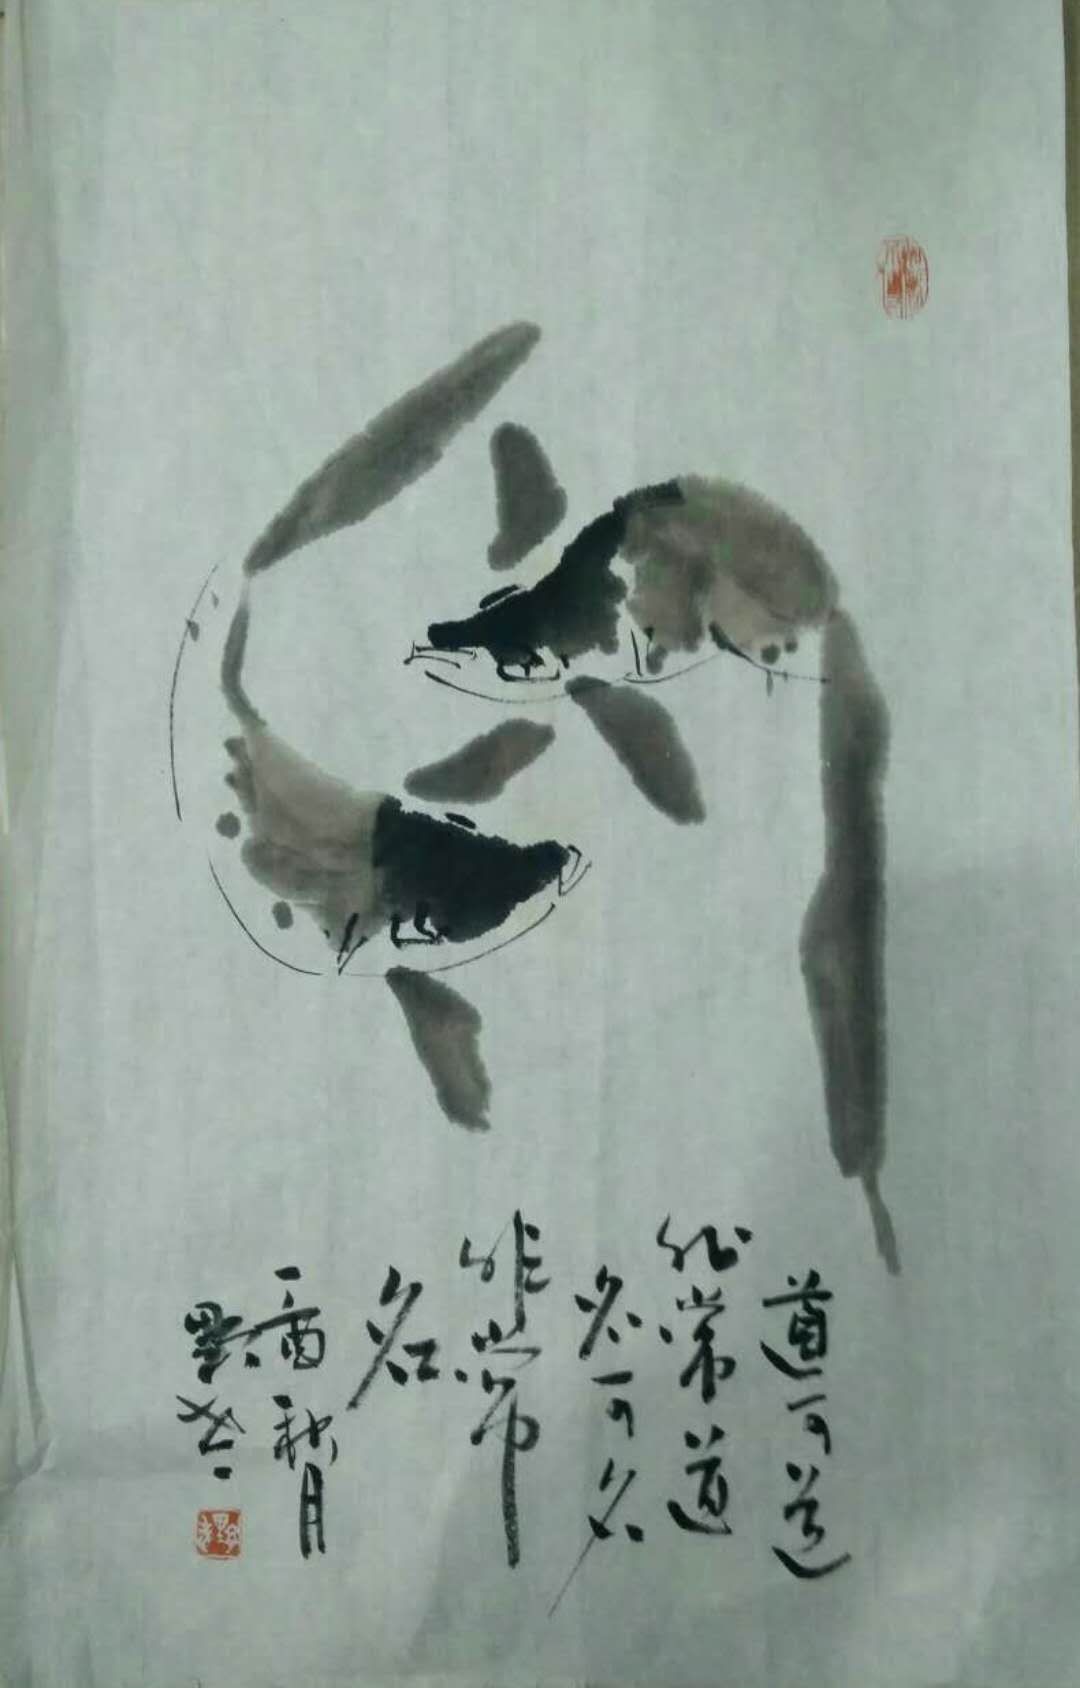 道可道
非常道
名可名
非常
名
丁酉秋月